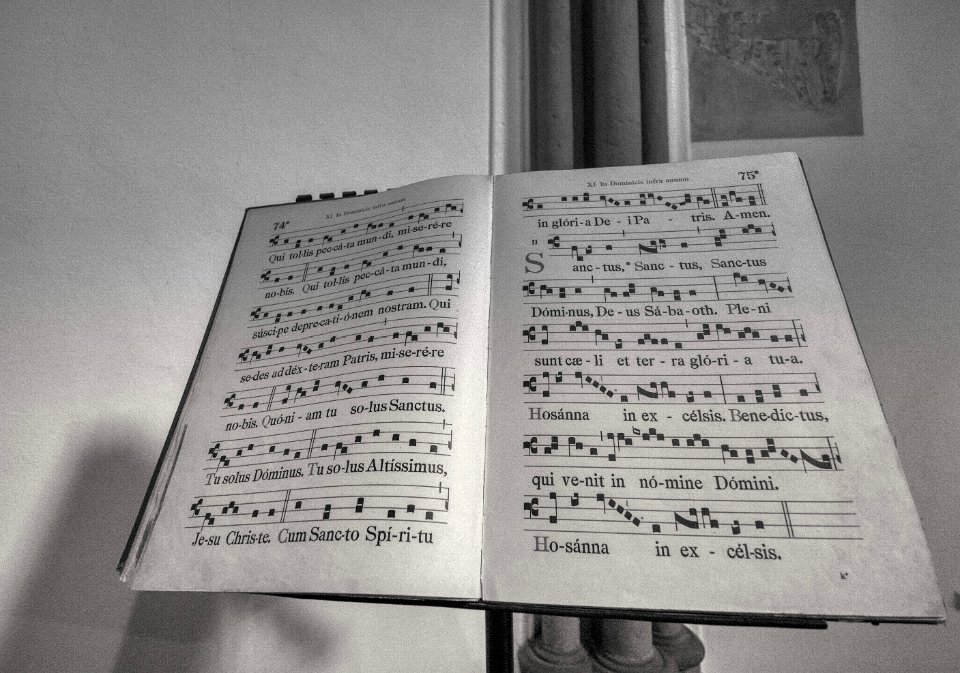 74*
XI In Dominicis infra annum
Qui tol-lis pec-cá-ta mun-di, mi-se-ré-re
no-bis. Qui tol-lis pec-cá-ta mun-di,
súsci-pe depre-ca-ti-ó-nem nostram. Qui
se-des ad déx-te-ram Patris, mi-se-ré-re
no-bis. Quó-ni-am tu so-lus Sanctus.
Tu solus Dóminus. Tu so-lus Altíssimus,
Je-su Chris-te. Cum Sanc-to Spí-ri-tu
XI In Dominicis infra annum
75*
in glóri-a De-i Pa-tris. A-men.
II
Sanc-tus,* Sanc-tus, Sanc-tus
Dómi-nus, De-us Sá-ba-oth. Ple-ni
sunt cæ-li et ter-ra gló-ri-a tu-a.
Hosánna in ex-célsis. Bene-dic-tus,
qui ve-nit in nó-mine Dómini.
Ho-sánna in ex-cél-sis.